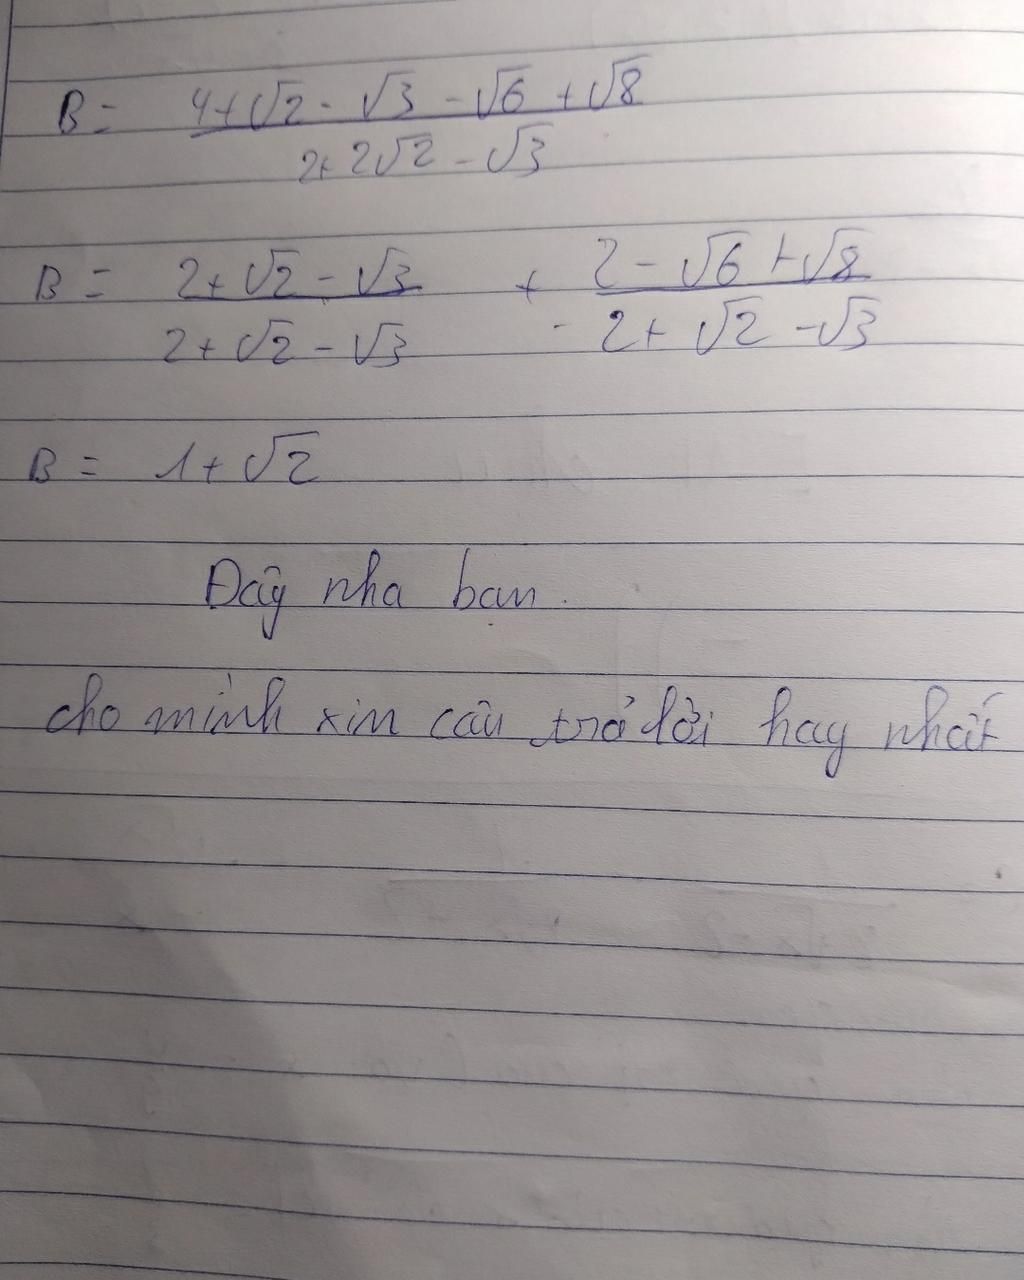 B = (4+√2 - √3 - √6 + √8) / (2+ 2√2 - √3)
B = (2+√2 - √3) / (2+√2 - √3) + (2 - √6 + √8) / (2+ √2 - √3)
B = 1+√2
Đây nha bạn.
cho mình xin câu trả lời hay nhất